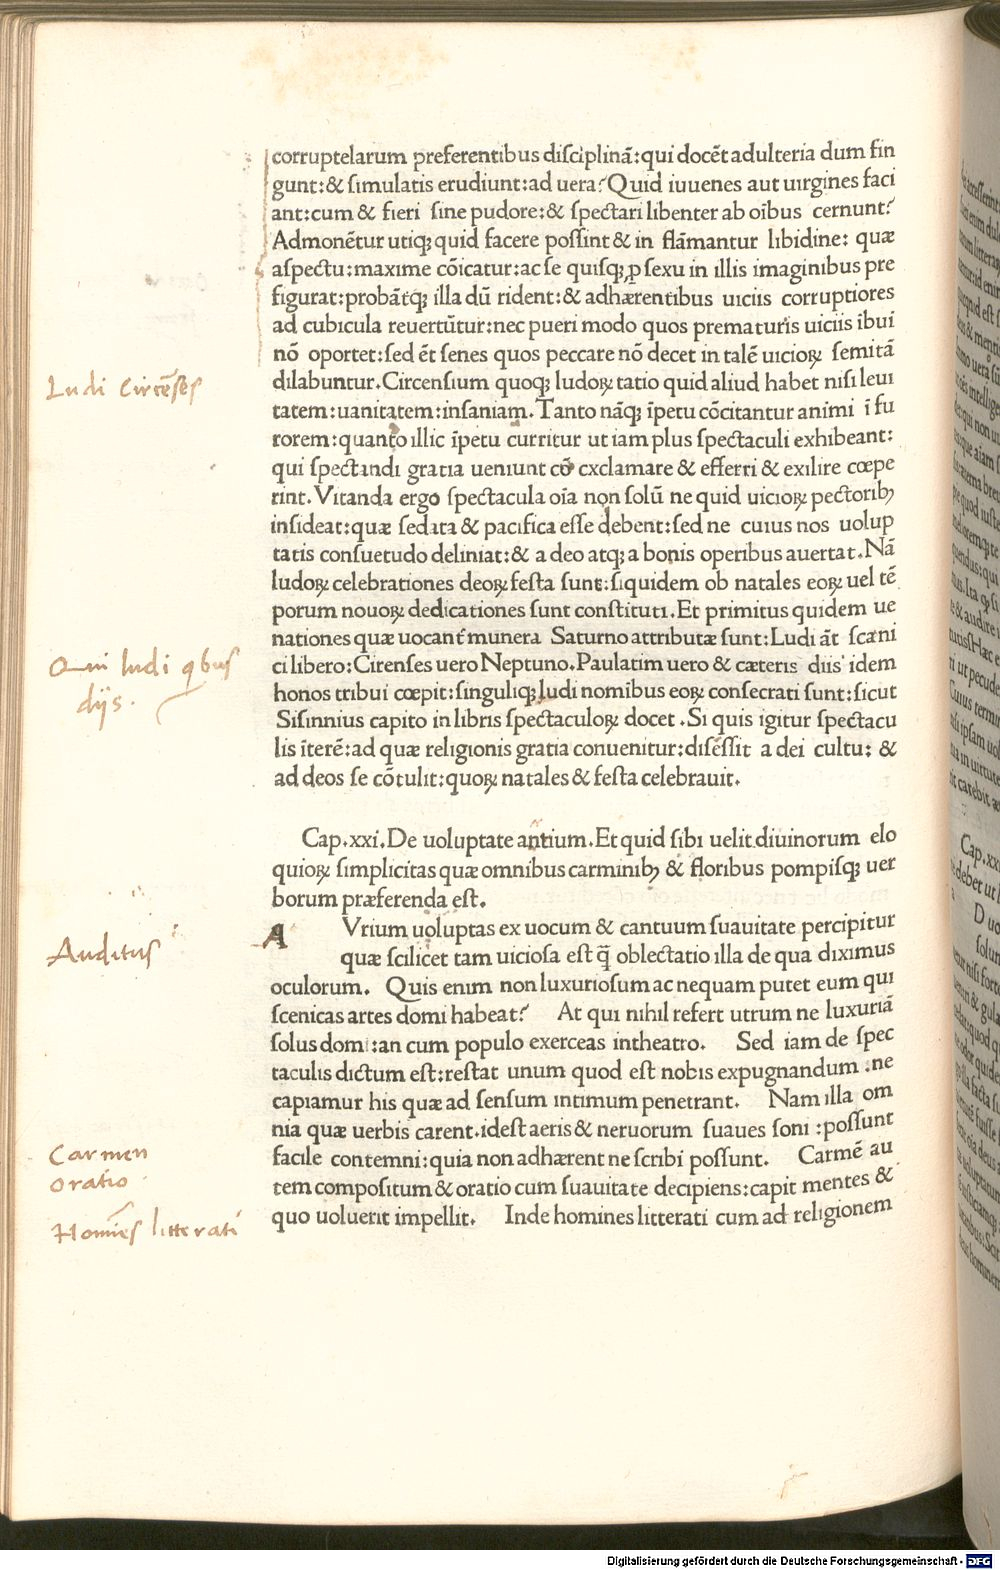 corruptelarum preferentibus disciplinã:qui docẽt adulteria dum fin
gunt:& simulatis erudiunt:ad uera?Quid iuuenes aut uirgines faci
ant:cum & fieri sine pudore:& spectari libenter ab oĩbus cernunt?
Admonẽtur utiqꝫ quid facere possint & in flãmantur libidine: quæ
aspectu:maxime cõicatur:ac se quisqꝫ ꝓ sexu in illis imaginibus pre
figurat:probãtqꝫ illa dũ rident:& adhærentibus uiciis corruptiores
ad cubicula reuertũtur:nec pueri modo quos prematuris uiciis ĩbui
nõ oportet:sed ẽt senes quos peccare nõ decet in talẽ uicioꝝ semitã
dilabuntur.Circensium quoqꝫ ludoꝝ tatio quid aliud habet nisi leui
tatem:uanitatem:insaniam.Tanto nãqꝫ ĩpetu cõcitantur animi ĩ fu
rorem:quanto illic ĩpetu curritur ut iam plus spectaculi exhibeant:
qui spectandi gratia ueniunt cũ cxclamare & efferri & exilire cœpe
rint.Vitanda ergo spectacula oĩa non solũ ne quid uicioꝝ pectoribꝫ
insideat:quæ sedata & pacifica esse debent:sed ne cuius nos uolup
tatis consuetudo deliniat:& a deo atqꝫ a bonis operibus auertat.Nã
ludoꝝ celebrationes deoꝝ festa sunt:siquidem ob natales eoꝝ uel tẽ
porum nouoꝝ dedicationes sunt constituti.Et primitus quidem ue
nationes quæ uocant̃ munera Saturno attributæ sunt:Ludi ãt scæni
ci libero:Cirenses uero Neptuno.Paulatim uero & cæteris diis idem
honos tribui cœpit:singuliqꝫ ludi nomibus eoꝝ consecrati sunt:sicut
Sisinnius capito in libris spectaculoꝝ docet.Si quis igitur spectacu
lis ĩterẽ:ad quæ religionis gratia conuenitur:disessit a dei cultu: &
ad deos se cõtulit:quoꝝ natales & festa celebrauit.
Cap.xxi.De uoluptate antium.Et quid sibi uelit diuinorum elo
quioꝝ simplicitas quæ omnibus carminibꝫ & floribus pompisqꝫ uer
borum præferenda est.
A Vrium uoluptas ex uocum & cantuum suauitate percipitur
quæ scilicet tam uiciosa est q̃ oblectatio illa de qua diximus
oculorum. Quis enim non luxuriosum ac nequam putet eum qui
scenicas artes domi habeat? At qui nihil refert utrum ne luxuriã
solus domi:an cum populo exerceas intheatro. Sed iam de spec
taculis dictum est:restat unum quod est nobis expugnandum :ne
capiamur his quæ ad sensum intimum penetrant. Nam illa om
nia quæ uerbis carent.idest aeris & neruorum suaues soni :possunt
facile contemni:quia non adhærent ne scribi possunt. Carmẽ au
tem compositum & oratio cum suauitate decipiens:capit mentes &
quo uoluerit impellit. Inde homines litterati cum ad religionem
Ludi Circẽses
Qui ludi qbus
diis.
Auditus
Carmen
oratio
Homĩes litterati
Digitalisierung gefördert durch die Deutsche Forschungsgemeinschaft - DFG